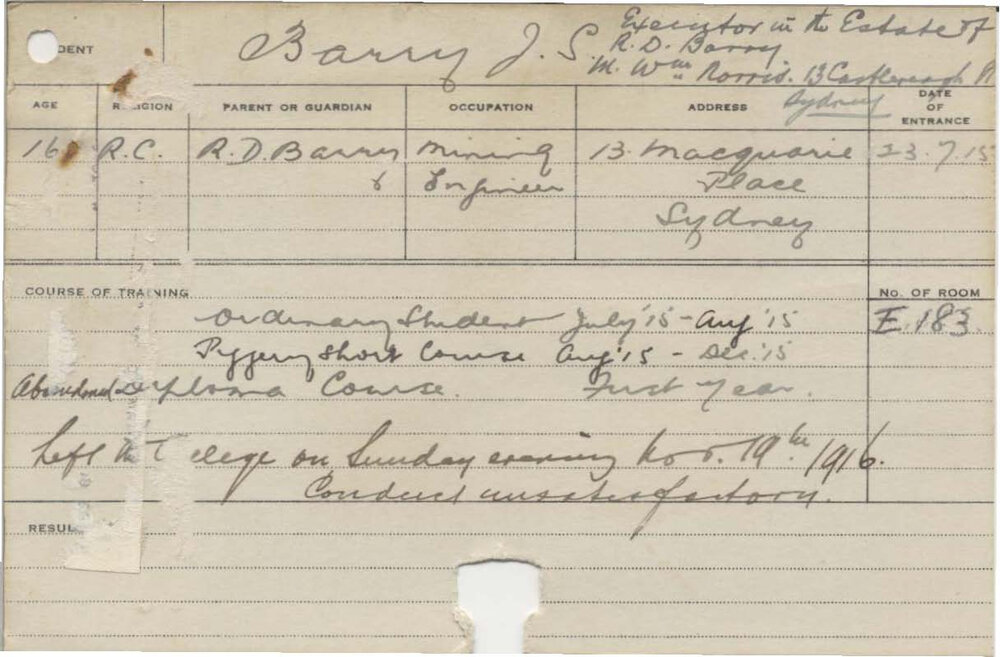 DENT Barry J. S. Executor in the Estate of
R. D. Barry
M. Wm Norris. 13 Castlereagh St
Sydney
AGE RELIGION PARENT OR GUARDIAN OCCUPATION ADDRESS DATE OF ENTRANCE
16 R.C. R. D. Barry Mining 13 Macquarie 23.7.15
Engineer Place
Sydney
COURSE OF TRAINING No. OF ROOM
Ordinary Student July '15 - Aug '15 E. 183
Piggery Short Course Aug '15 - Dec. '15
Abandoned Diploma Course. First Year.
Left the College on Sunday evening Nov. 19th 1916.
Conduct unsatisfactory.
RESUL